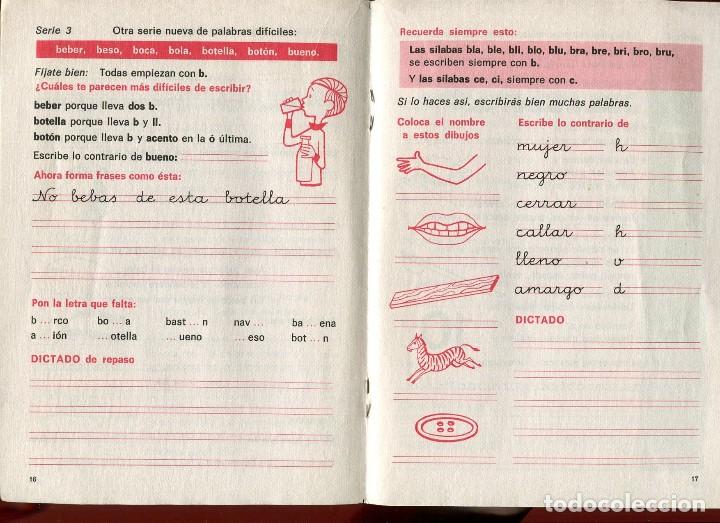 Serie 3 Otra serie nueva de palabras difíciles:
beber, beso, boca, bola, botella, botón, bueno.
Fíjate bien: Todas empiezan con b.
¿Cuáles te parecen más difíciles de escribir?
beber porque lleva dos b.
botella porque lleva b y ll.
botón porque lleva b y acento en la ó última.
Escribe lo contrario de bueno:
Ahora forma frases como ésta:
No bebas de esta botella
Pon la letra que falta:
b ... rco bo ... a bast ... n nav ... ba ... ena
a ... ión ... otella ... ueno ... eso bot ... n
DICTADO de repaso
16
Recuerda siempre esto:
Las sílabas bla, ble, bli, blo, blu, bra, bre, bri, bro, bru,
se escriben siempre con b.
Y las sílabas ce, ci, siempre con c.
Si lo haces así, escribirás bien muchas palabras.
Coloca el nombre
a estos dibujos
Escribe lo contrario de
mujer h
negro
cerrar
callar h
lleno v
amargo d
DICTADO
17
todocoleccion